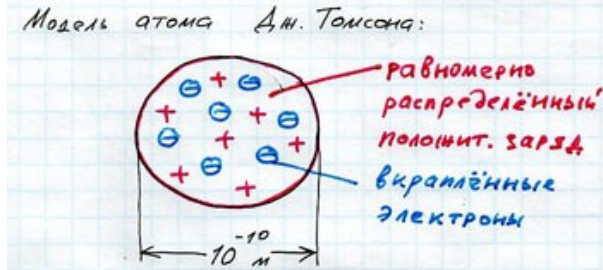 Модель атома Дж. Томсона:
равномерно
распределённый
положит. заряд
вкраплённые
электроны
10⁻¹⁰ м